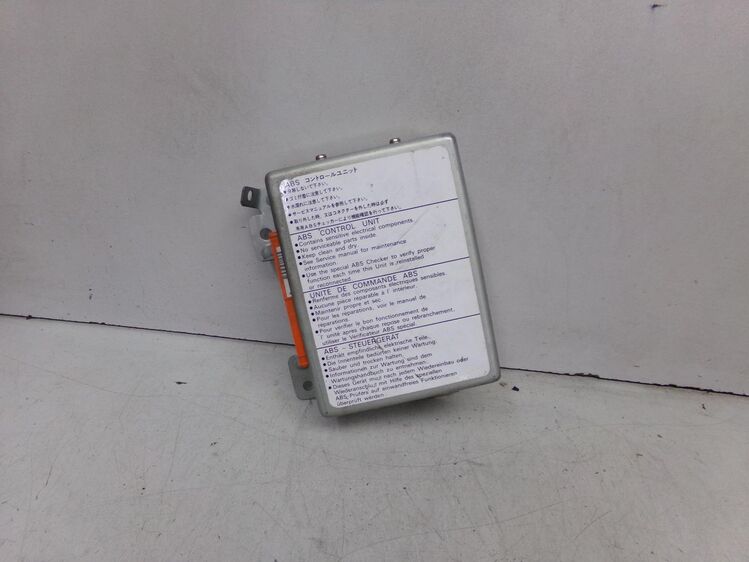 ABS コントロールユニット
●分解しないで下さい。
●ゴミ付着に注意して下さい。
●水濡れに注意して下さい。
●サービスマニュアルを参照して下さい。
●取り外した時、又はコネクターを外した時は必ず
専用ABSチェッカーにより機能確認を行って下さい。
ABS CONTROL UNIT
●Contains sensitive electrical components
●No serviceable parts inside.
●Keep clean and dry.
●See Service manual for maintenance
information.
●Use the special ABS Checker to verify proper
function each time this Unit is reinstalled
or reconnected.
UNITE DE COMMANDE ABS
●Renferme des composants électriques sensibles.
●Aucune pièce réparable à l' intérieur.
●Maintenir propre et sec.
●Pour les réparations, voir le manuel de
réparations.
●Pour vérifier le bon fonctionnement de
l' unité après chaque repose ou rebranchement.
utiliser le Vérificateur ABS spécial.
ABS - STEUERGERÄT
●Enthält empfindliche elektrische Teile.
●Die Innenteile bedürfen keiner Wartung.
●Sauber und trocken halten.
●Informationen zur Wartung sind dem
Wartungshandbuch zu entnehmen.
●Dieses Gerät muß nach jedem Wiedereinbau oder
Wiederanschluß mit Hilfe des speziellen
ABS-Prüfers auf einwandfreies Funktionieren
überprüft werden.